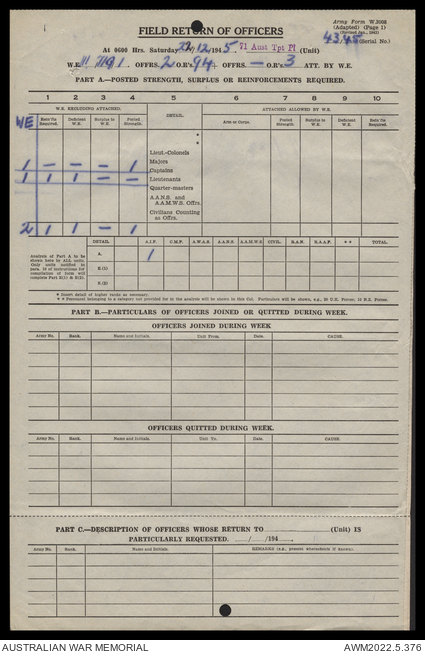 Army Form W.3008
(Adapted) (Page 1)
FIELD RETURN OF OFFICERS
43/45 (Serial No.)
At 0600 Hrs. Saturday 22/12/1945 71 Aust Tpt Pl (Unit)
W.E. OFFRS. 2 O.R's. 94 OFFRS. — O.R's. 3 ATT. BY W.E.
PART A.—POSTED STRENGTH, SURPLUS OR REINFORCEMENTS REQUIRED.
1 2 3 4 5 6 7 8 9 10
W.E. EXCLUDING ATTACHED. DETAIL. ATTACHED ALLOWED BY W.E.
WE Rein Ftn Required. Deficient W.E. Surplus to W.E. Posted Strength. Arm or Corps. Posted Strength. Surplus to W.E. Deficient W.E. Rein Ftn Required.
*
*
Lieut.-Colonels
Majors
1 — — — 1 Captains
1 1 1 — — Lieutenants
Quarter-masters
A.A.N.S. and
A.A.M.W.S. Offrs.
Civilians Counting
as Offrs.
2 1 1 — 1
DETAIL. A.I.F. C.M.F. A.W.A.S. A.A.N.S. A.A.M.W.S. CIV. R.A.N. R.A.A.F. * * TOTAL.
Analysis of Part A to be
shown here by ALL units.
Only units notified in
para. 18 of instructions for
compilation of form will
complete Part B(1) & B(2).
A. 1
B.(1)
B.(2)
* Insert detail of higher ranks as necessary.
* * Personnel belonging to a category not provided for in the analysis will be shown in this Col. Particulars will be shown, e.g., 20 U.S. Forces, 10 N.Z. Forces.
PART B.—PARTICULARS OF OFFICERS JOINED OR QUITTED DURING WEEK.
OFFICERS JOINED DURING WEEK
Army No. Rank. Name and Initials. Unit From. Date. CAUSE.
OFFICERS QUITTED DURING WEEK.
Army No. Rank. Name and Initials. Unit To. Date. CAUSE.
PART C.—DESCRIPTION OF OFFICERS WHOSE RETURN TO (Unit) IS
PARTICULARLY REQUESTED. / /194 .
Army No. Rank. Name and Initials. REMARKS (e.g., present whereabouts if known).
AUSTRALIAN WAR MEMORIAL AWM2022.5.376